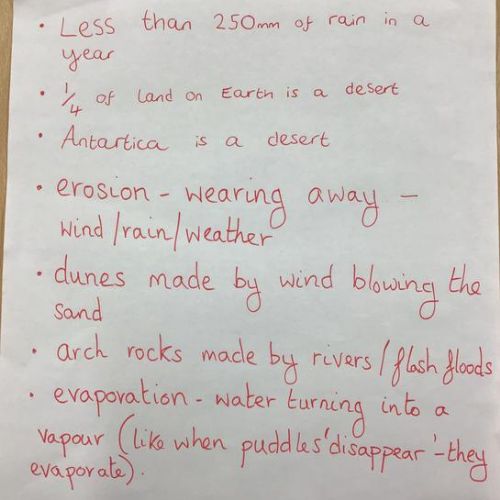 • Less than 250mm of rain in a
year
• 1/4 of land on Earth is a desert
• Antartica is a desert
• erosion - wearing away -
wind/rain/weather
• dunes made by wind blowing the
sand
• arch rocks made by rivers/flash floods
• evaporation - water turning into a
vapour (like when puddles 'disappear' - they
evaporate).